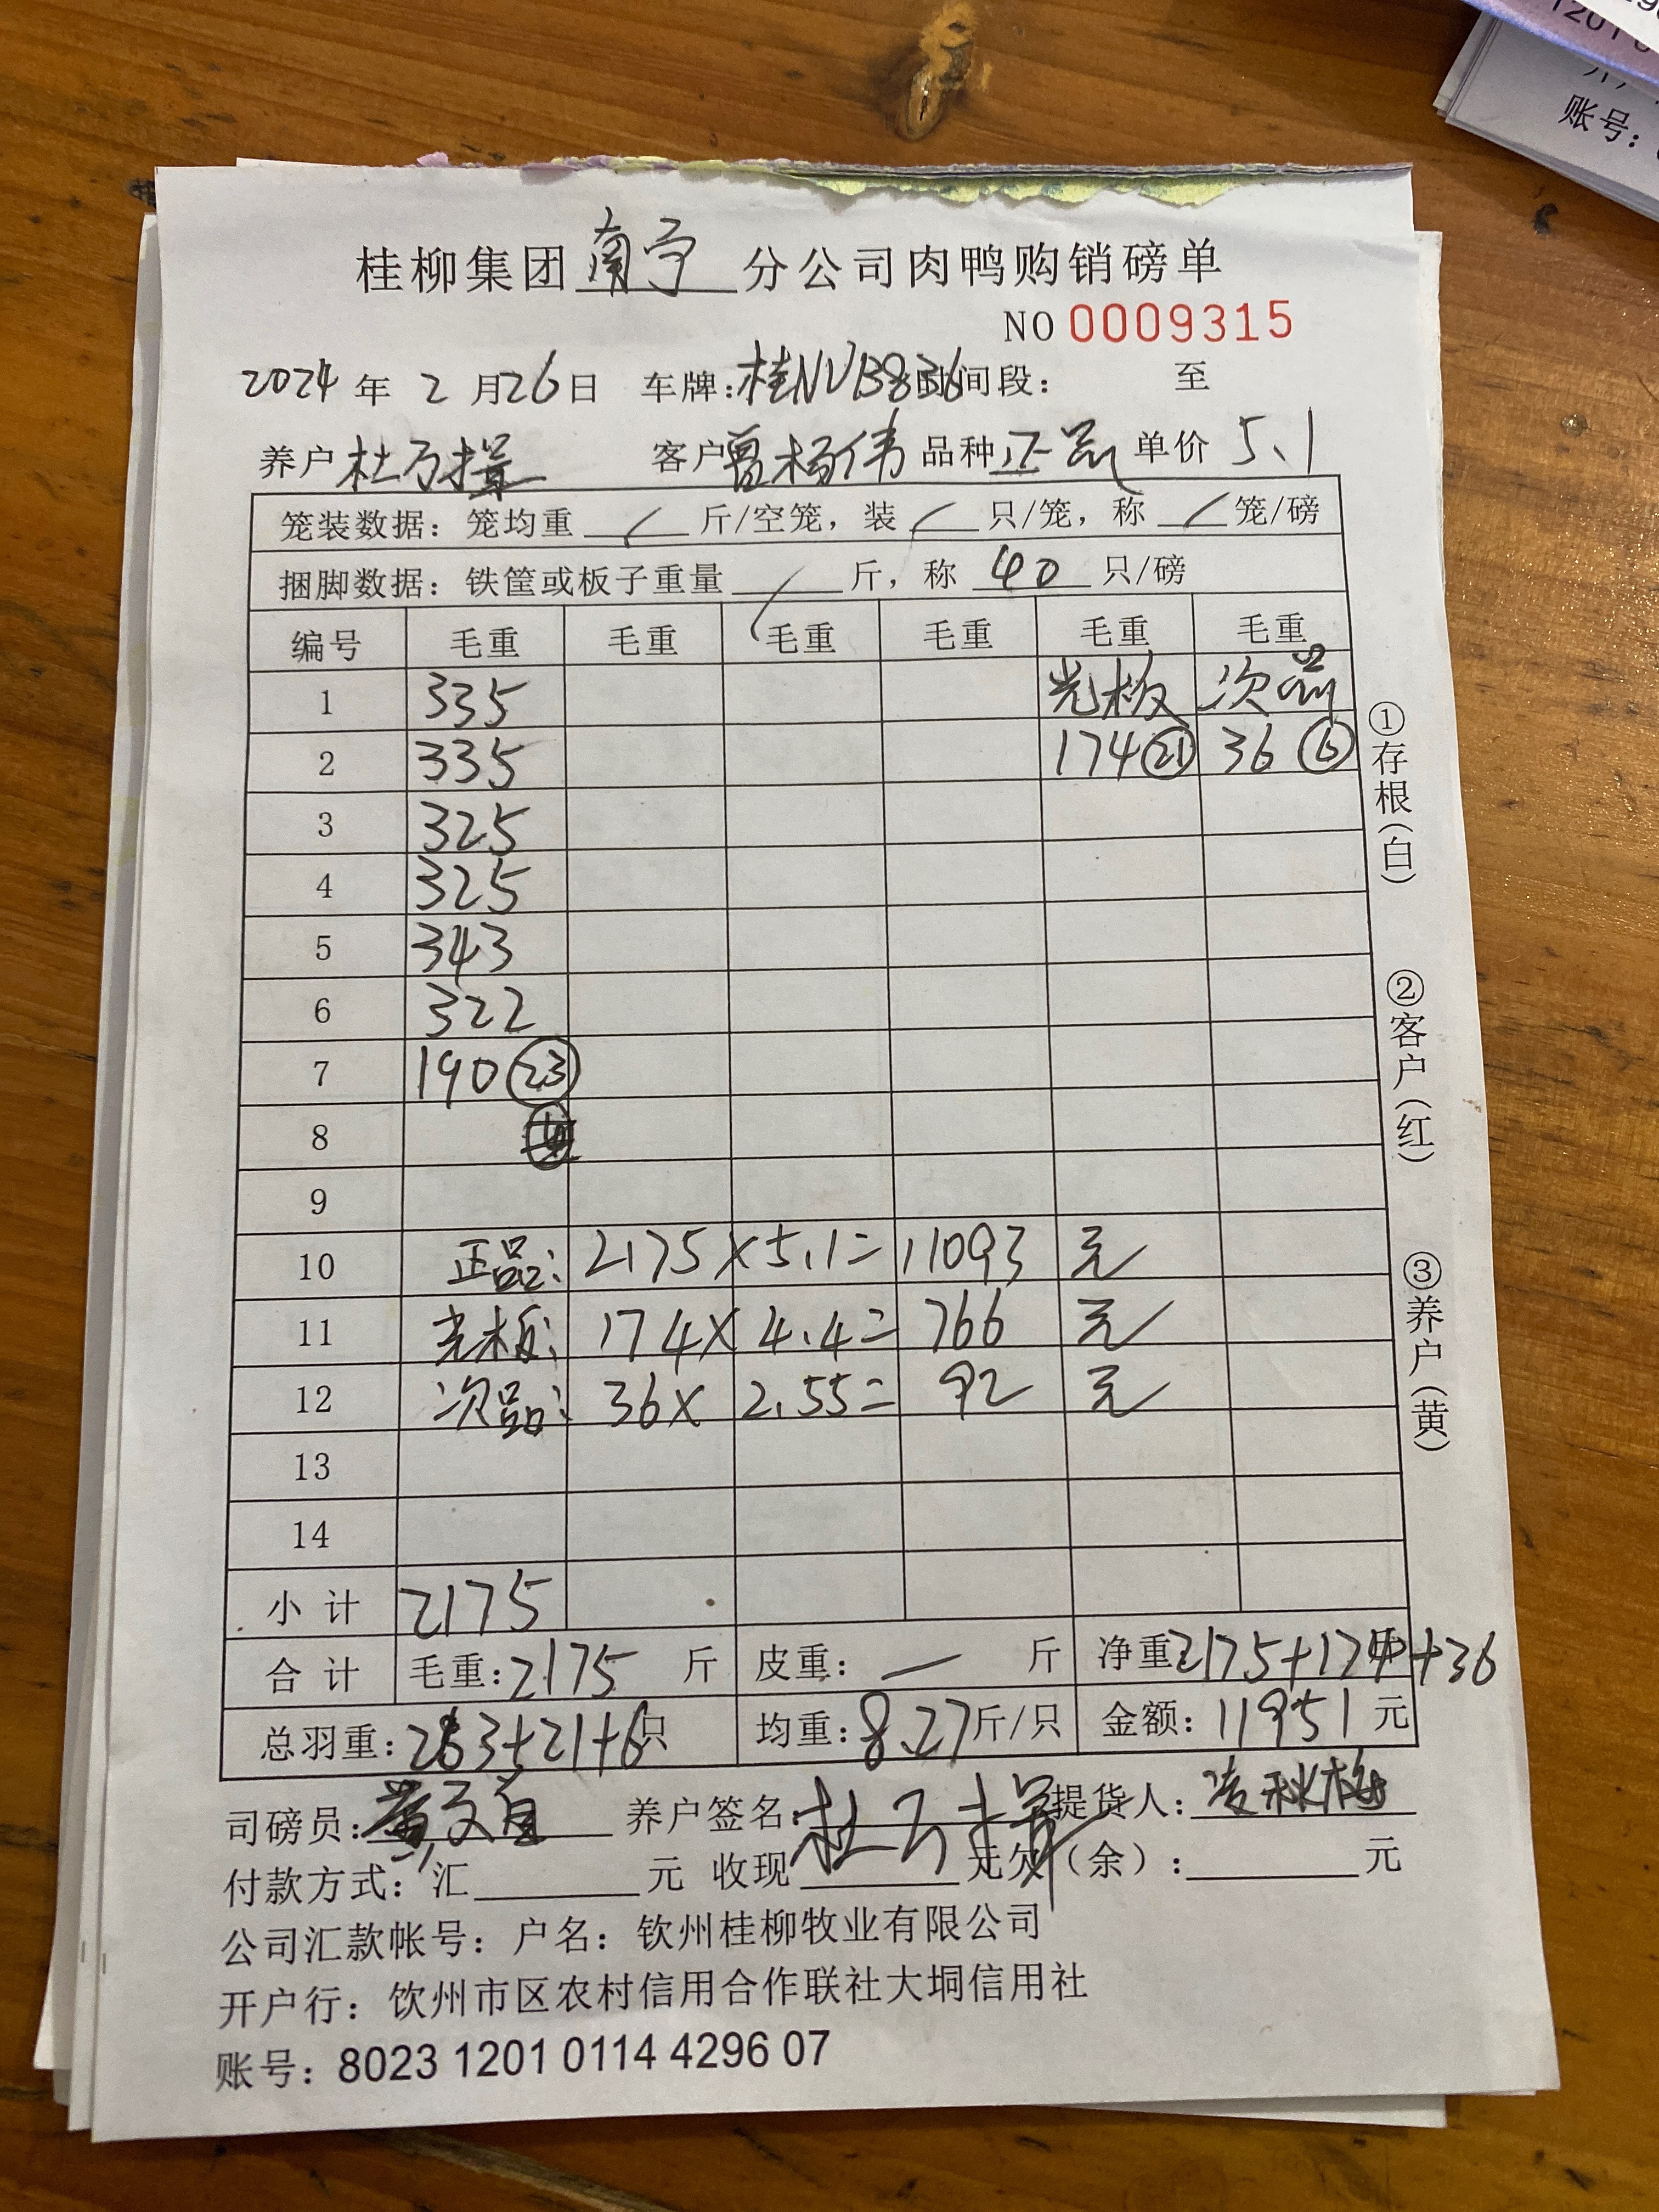 桂柳集团南宁分公司肉鸭购销磅单
NO 0009315
2024年2月26日 车牌:桂NVB836时间段: 至
养户杜万 客户曾杨伟 品种正品 单价5.1
笼装数据: 笼均重 / 斤/空笼, 装 / 只/笼, 称 / 笼/磅
捆脚数据: 铁筐或板子重量 / 斤, 称 40 只/磅
编号 毛重 毛重 毛重 毛重 毛重 毛重
1 335 光板 次品
2 335 174㉑ 36⑥
3 325
4 325
5 343
6 322
7 190㉓
8
9
10 正品: 2175×5.1= 11093 元
11 光板: 174×4.4= 766 元
12 次品: 36×2.55= 92 元
13
14
小计 2175
合计 毛重:2175 斤 皮重: — 斤 净重:2175+174+36
总羽重:263+21+6只 均重:8.27斤/只 金额:11951元
司磅员:黄 养户签名:杜万 提货人:凌秋梅
付款方式: 汇 元 收现 元欠(余): 元
公司汇款帐号: 户名: 钦州桂柳牧业有限公司
开户行: 钦州市区农村信用合作联社大垌信用社
账号: 8023 1201 0114 4296 07
①存根(白)
②客户(红)
③养户(黄)
账号: